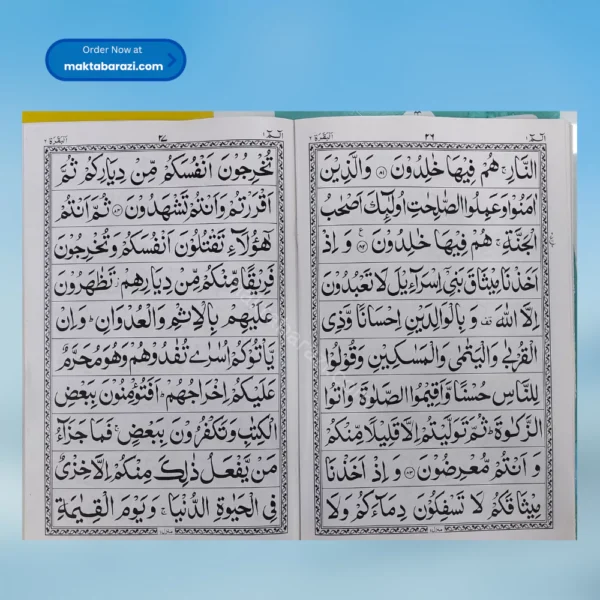 Order Now at
maktabarazi.com
الٓمّٓ ١
٢٦
اَلْبَقَرَة ٢
النَّارِ ۚ هُمْ فِیْهَا خٰلِدُوْنَ ﴿۸۱﴾ وَالَّذِیْنَ
اٰمَنُوْا وَعَمِلُوا الصّٰلِحٰتِ اُولٰٓئِكَ اَصْحٰبُ
الْجَنَّةِ ۚ هُمْ فِیْهَا خٰلِدُوْنَ ﴿۸۲﴾ وَ اِذْ
اَخَذْنَا مِیْثَاقَ بَنِیْۤ اِسْرَآءِیْلَ لَا تَعْبُدُوْنَ
اِلَّا اللّٰهَ قف وَ بِالْوَالِدَیْنِ اِحْسَانًا وَّذِی
الْقُرْبٰی وَالْیَتٰمٰی وَالْمَسٰكِیْنِ وَقُوْلُوْا
لِلنَّاسِ حُسْنًا وَّاَقِیْمُوا الصَّلٰوةَ وَاٰتُوا
الزَّكٰوةَ ؕ ثُمَّ تَوَلَّیْتُمْ اِلَّا قَلِیْلًا مِّنْكُمْ
وَ اَنْتُمْ مُّعْرِضُوْنَ ﴿۸۳﴾ وَ اِذْ اَخَذْنَا
مِیْثَاقَكُمْ لَا تَسْفِكُوْنَ دِمَآءَكُمْ وَلَا
الٓمّٓ ١
٢٧
اَلْبَقَرَة ٢
تُخْرِجُوْنَ اَنْفُسَكُمْ مِّنْ دِیَارِكُمْ ثُمَّ
اَقْرَرْتُمْ وَاَنْتُمْ تَشْهَدُوْنَ ﴿۸۴﴾ ثُمَّ اَنْتُمْ
هٰۤؤُلَآءِ تَقْتُلُوْنَ اَنْفُسَكُمْ وَتُخْرِجُوْنَ
فَرِیْقًا مِّنْكُمْ مِّنْ دِیَارِهِمْ ؗ تَظٰهَرُوْنَ
عَلَیْهِمْ بِالْاِثْمِ وَالْعُدْوَانِ ؕ وَاِنْ
یَّاْتُوْكُمْ اُسٰرٰی تُفٰدُوْهُمْ وَهُوَ مُحَرَّمٌ
عَلَیْكُمْ اِخْرَاجُهُمْ ؕ اَفَتُؤْمِنُوْنَ بِبَعْضِ
الْكِتٰبِ وَتَكْفُرُوْنَ بِبَعْضٍ ۚ فَمَا جَزَآءُ
مَنْ یَّفْعَلُ ذٰلِكَ مِنْكُمْ اِلَّا خِزْیٌ
فِی الْحَیٰوةِ الدُّنْیَا ۚ وَیَوْمَ الْقِیٰمَةِ